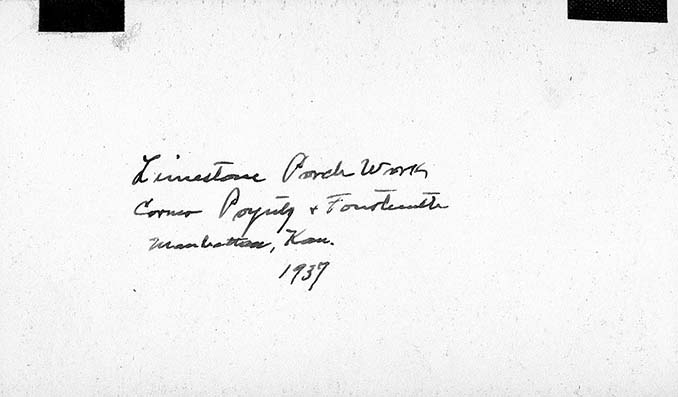 Limestone Porch Work
Corner Poyntz + Fourteenth
Manhattan, Kan.
1937